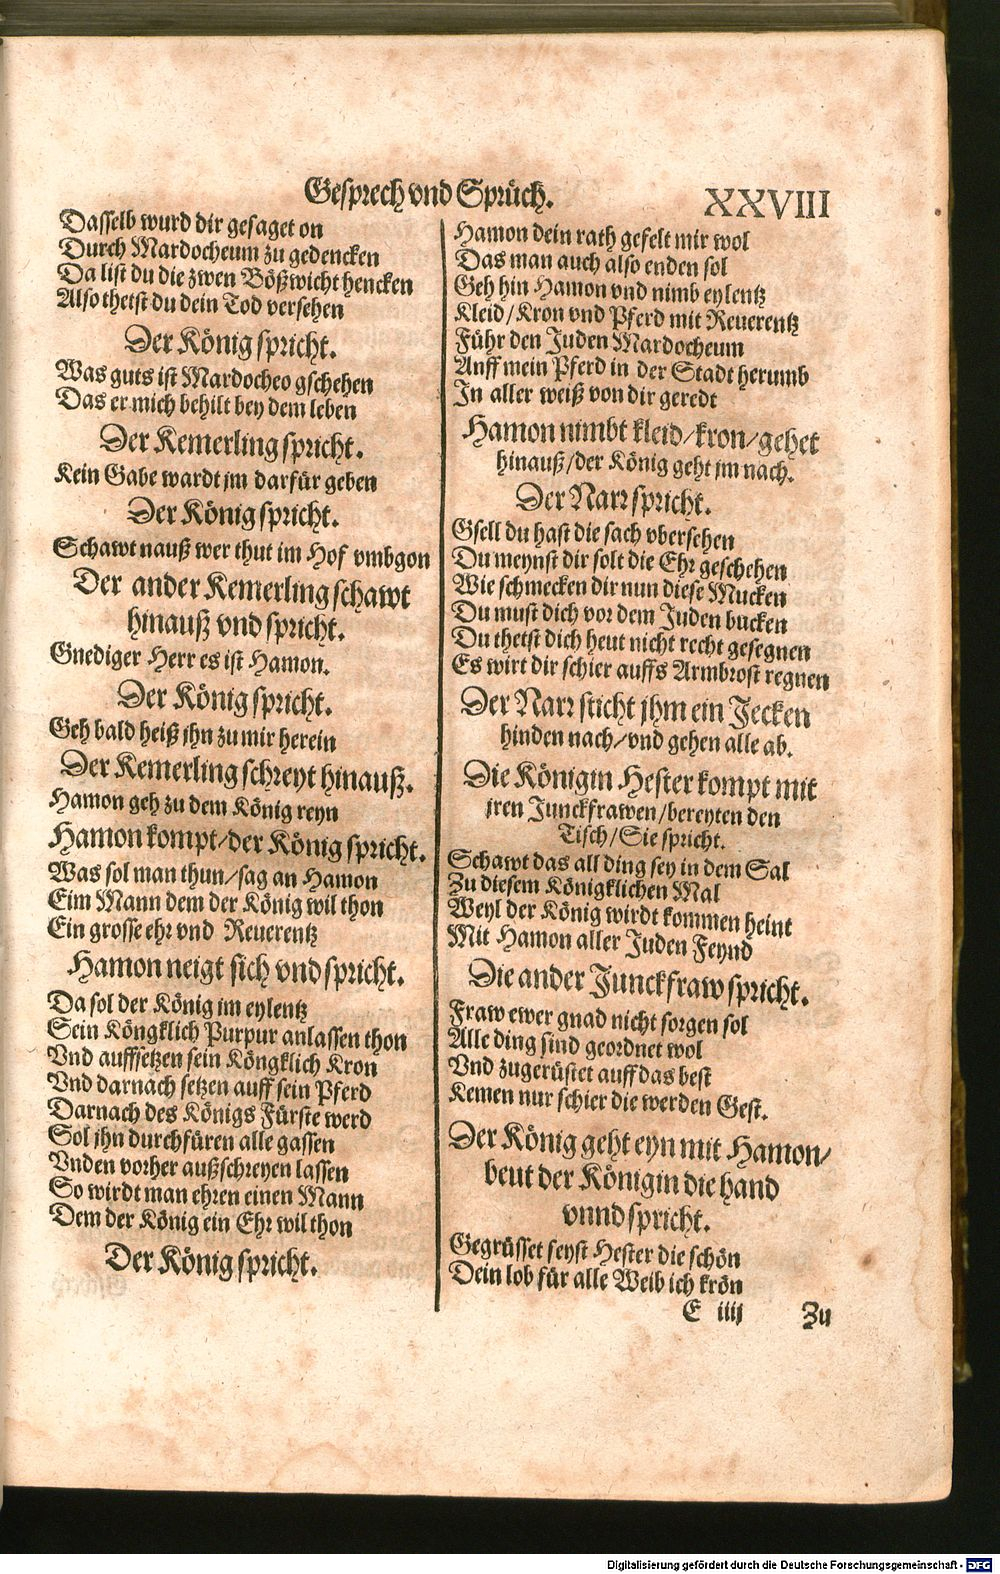 Gesprech vnd Sprüch.
XXVIII
Dasselb wurd dir gesaget on
Durch Mardocheum zu gedencken
Da list du die zwen Bößwicht hencken
Also thetst du dein Tod versehen
Der König spricht.
Was guts ist Mardocheo gschehen
Das er mich behilt bey dem leben
Der Kemerling spricht.
Kein Gabe wardt jm darfür geben
Der König spricht.
Schawt nauß wer thut im Hof vmbgon
Der ander Kemerling schawt
hinauß vnd spricht.
Gnediger Herr es ist Hamon.
Der König spricht.
Geh bald heiß jhn zu mir herein
Der Kemerling schreyt hinauß.
Hamon geh zu dem König reyn
Hamon kompt/der König spricht.
Was sol man thun/sag an Hamon
Eim Mann dem der König wil thon
Ein grosse ehr vnd Reuerentz
Hamon neigt sich vnd spricht.
Da sol der König im eylentz
Sein Köngklich Purpur anlassen thon
Vnd auffsetzen sein Köngklich Kron
Vnd darnach setzen auff sein Pferd
Darnach des Königs Fürste werd
Sol jhn durchfüren alle gassen
Vnden vorher außschreyen lassen
So wirdt man ehren einen Mann
Dem der König ein Ehr wil thon
Der König spricht.
Hamon dein rath gefelt mir wol
Das man auch also enden sol
Geh hin Hamon vnd nimb eylentz
Kleid/Kron vnd Pferd mit Reuerentz
Führ den Juden Mardocheum
Auff mein Pferd in der Stadt herumb
In aller weiß von dir geredt
Hamon nimbt kleid/kron/gehet
hinauß/der König geht jm nach.
Der Narr spricht.
Gsell du hast die sach vbersehen
Du meynst dir solt die Ehr geschehen
Wie schmecken dir nun diese Mucken
Du must dich vor dem Juden bucken
Du thetst dich heut nicht recht gesegnen
Es wirt dir schier auffs Armbrost regnen
Der Narr sticht jhm ein Jecken
hinden nach/vnd gehen alle ab.
Die Königin Hester kompt mit
jren Junckfrawen/bereyten den
Tisch/Sie spricht.
Schawt das all ding sey in dem Sal
Zu diesem Königklichen Mal
Weyl der König wirdt kommen heint
Mit Hamon aller Juden Feynd
Die ander Junckfraw spricht.
Fraw ewer gnad nicht sorgen sol
Alle ding sind geordnet wol
Vnd zugerüstet auff das best
Kemen nur schier die werden Gest.
Der König geht eyn mit Hamon/
beut der Königin die hand
vnnd spricht.
Gegrüsset seyst Hester die schön
Dein lob für alle Weib ich krön
E iiij
Zu
Digitalisierung gefördert durch die Deutsche Forschungsgemeinschaft - DFG